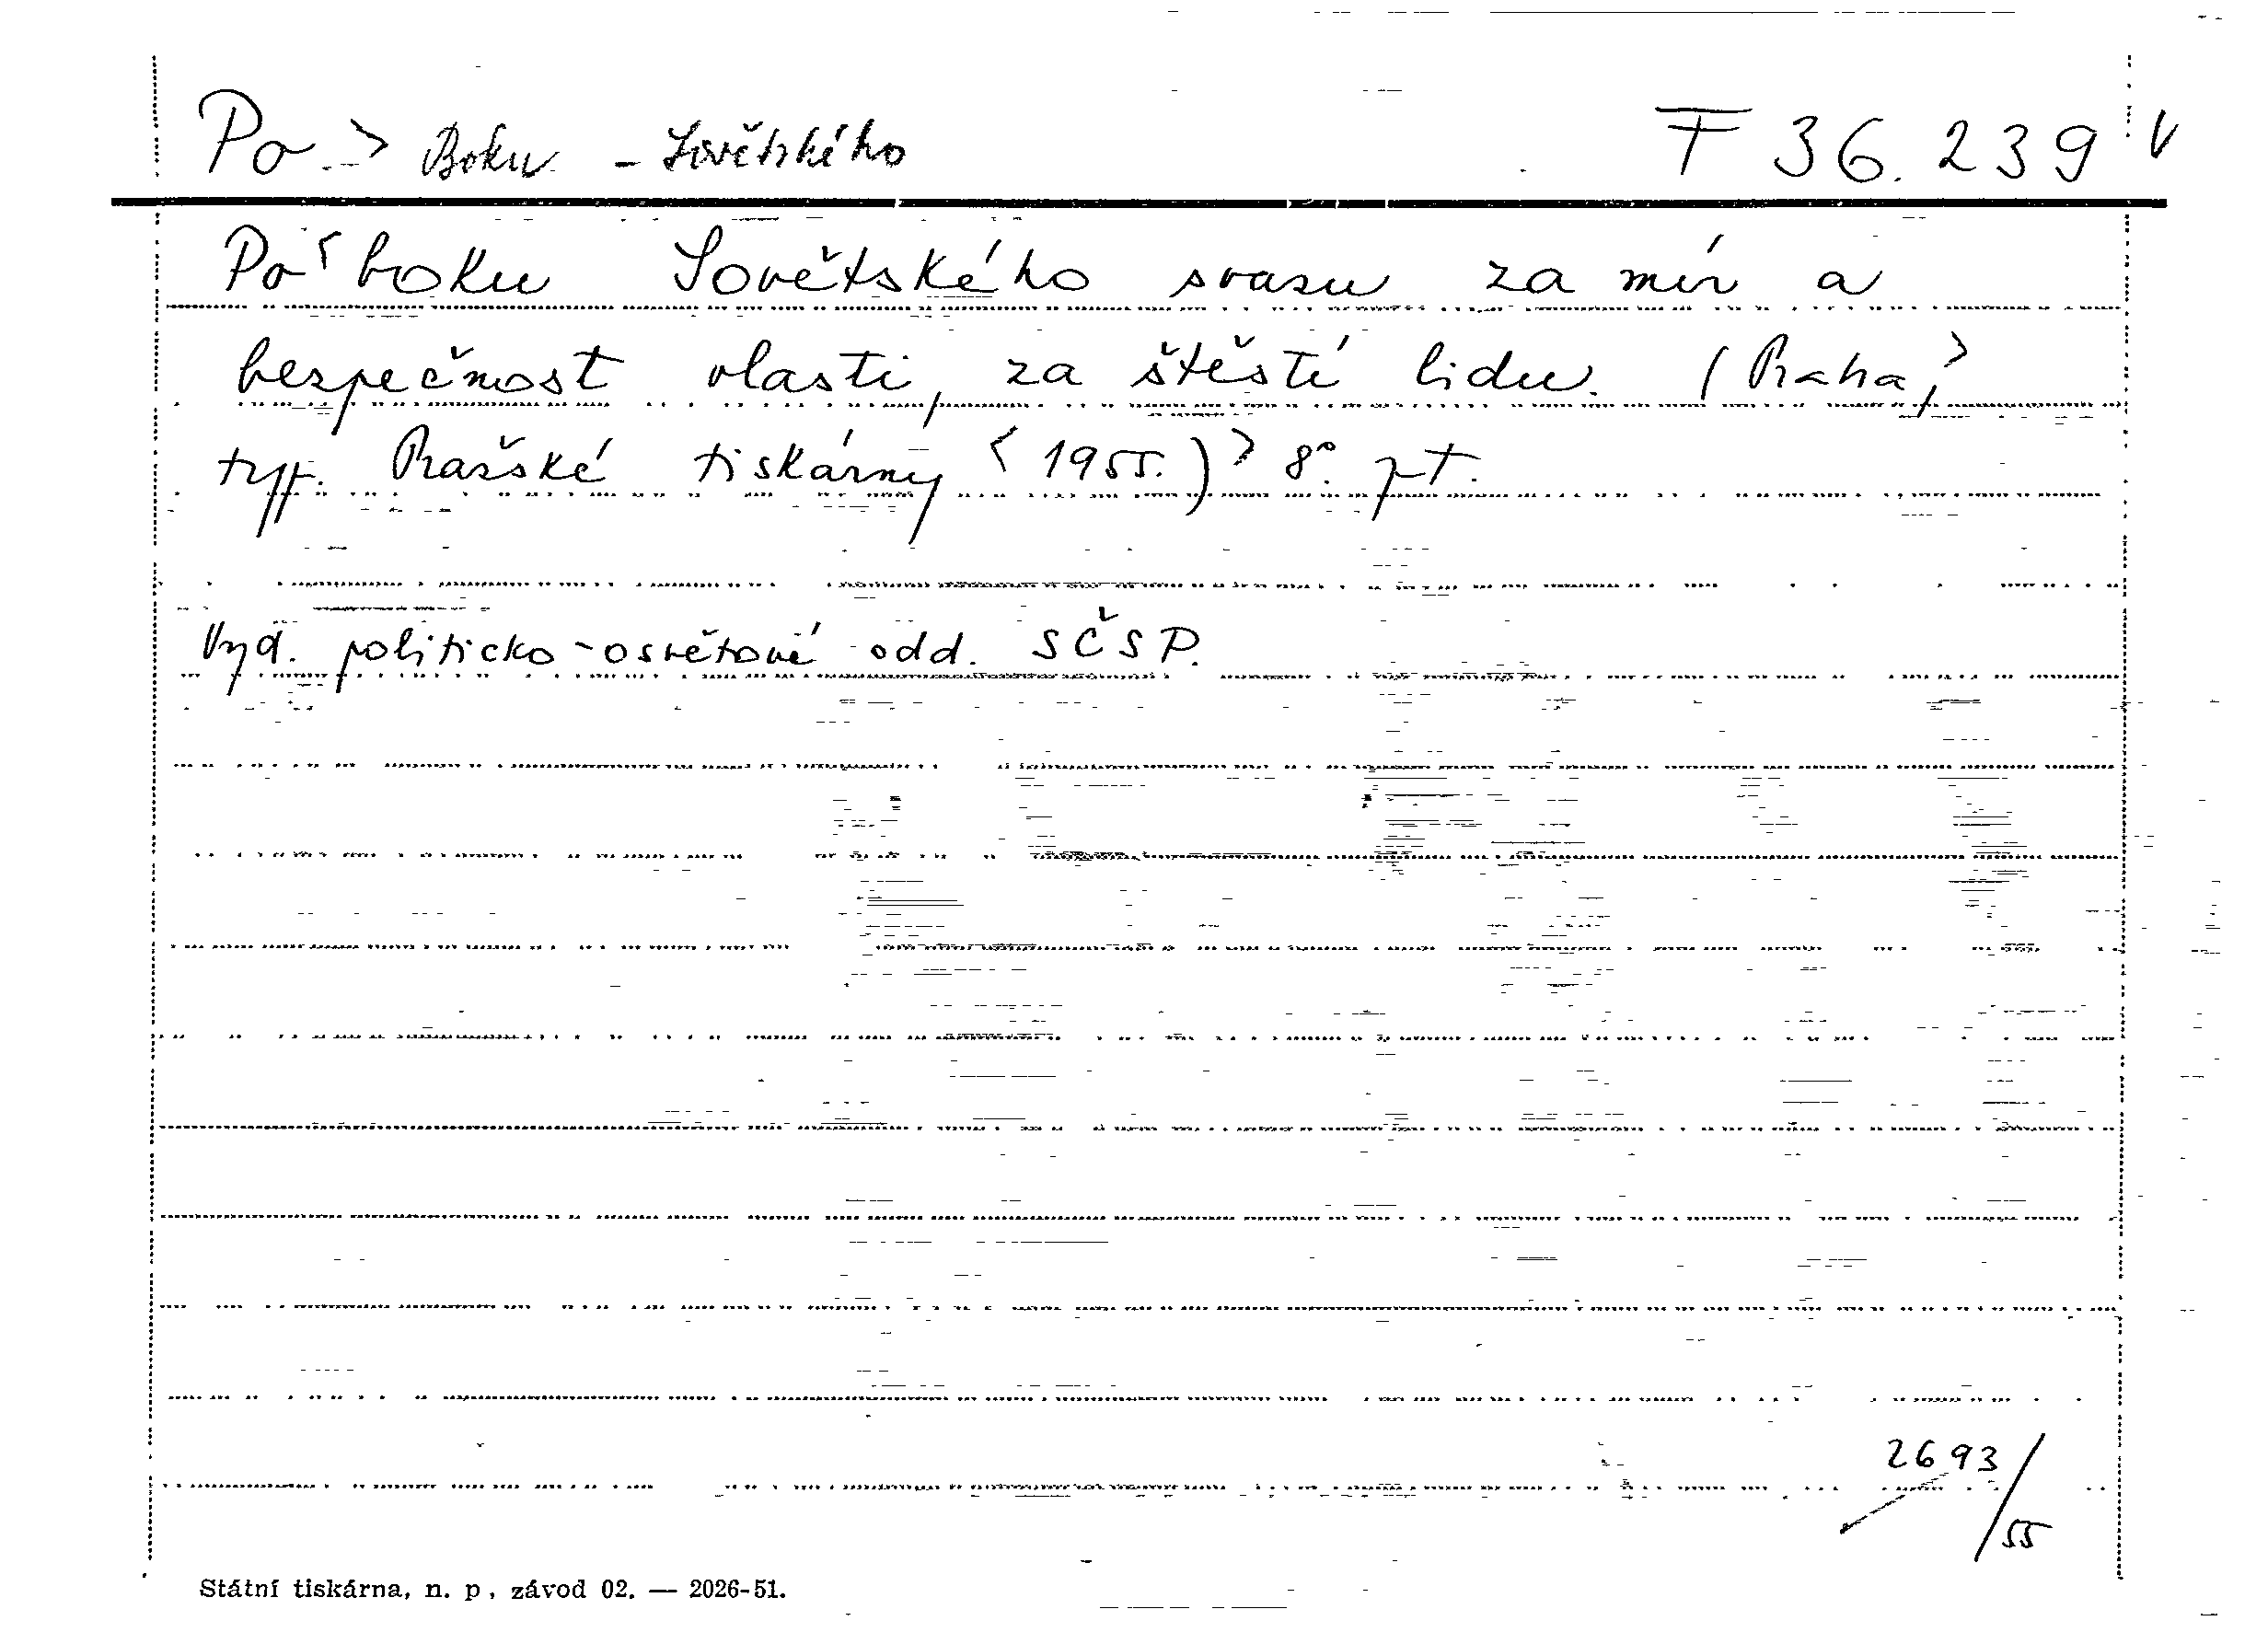 Po > Boku - Sovětského F 36.239 V
Po < boku Sovětského svazu za mír a
bezpečnost vlasti, za štěstí lidu. (Praha,>
typ. Pražské tiskárny < 1955.)> 8°. pt.
Vyd. politicko-osvětové odd. SČSP.
2693/55
Státní tiskárna, n. p, závod 02. — 2026-51.